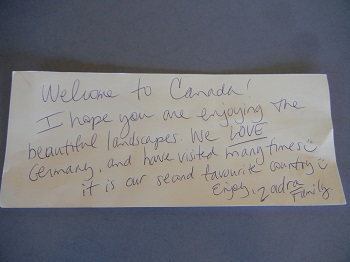 Welcome to Canada!
I hope you are enjoying the
beautiful landscapes. We LOVE
Germany, and have visited many times☺
it is our second favourite country☺
Enjoy, Zadra
Family